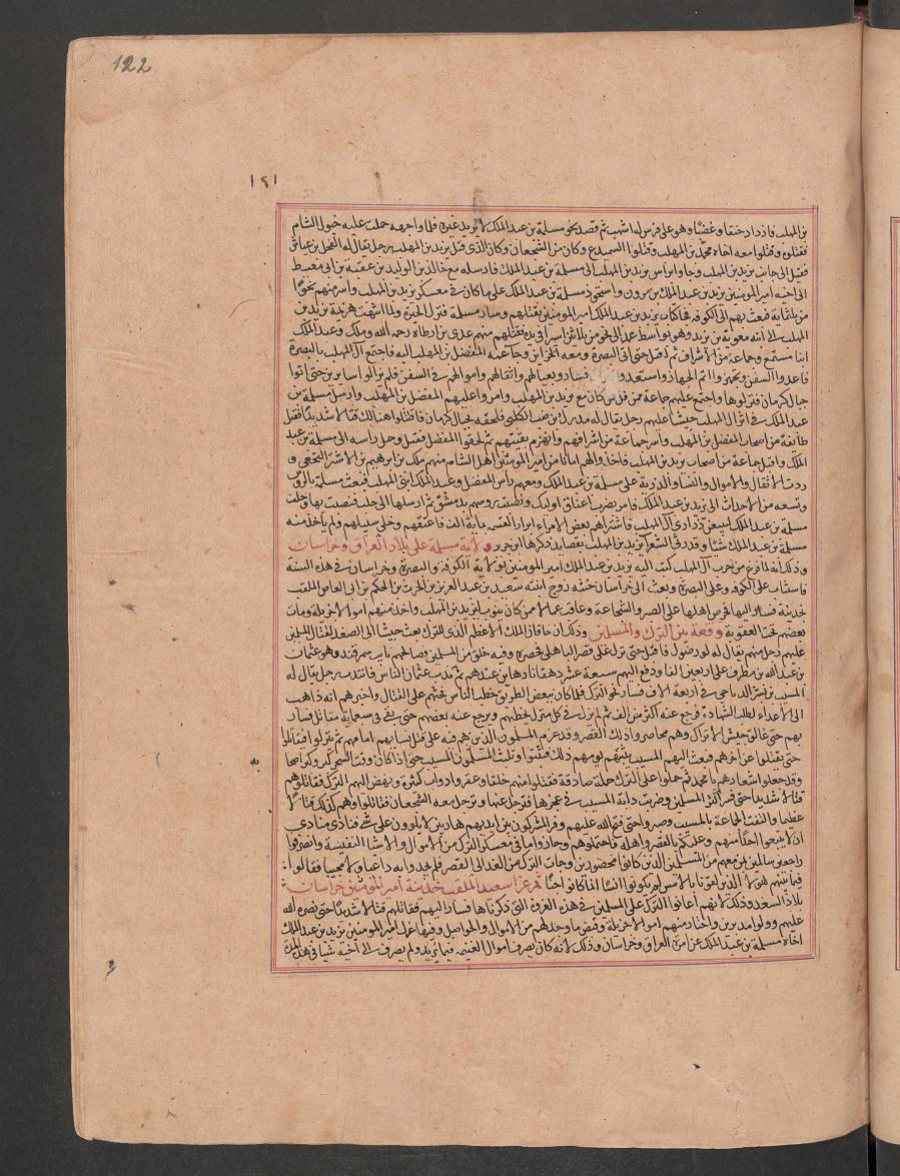 122
١٢١
بن المهلب فازداد حنقا وغضبا وهو على فرس له اشهب ثم قصد نحو مسلمة بن عبد الملك لا يريد غيره فلما واجهه حملت عليه خيول الشام
فقتلوه وقتلوا معه اخاه محمد بن المهلب وقتلوا السميدع وكان من الشجعان وكان الذى قتل يزيد بن المهلب رجل يقال له القحل بن عياش
فقتل الى جانب يزيد بن المهلب وجاوا براس يزيد بن المهلب الى مسلمة بن عبد الملك فارسله مع خالد بن الوليد بن عقبة بن ابى معيط
الى اخيه امير المومنين يزيد بن عبد الملك بن مروان واستحوذ مسلمة بن عبد الملك على ما كان فى معسكر يزيد بن المهلب واسر منهم نحوا
من ثلثماية فبعث بهم الى الكوفه فجا كتاب يزيد بن عبد الملك امير المومنين بقتلهم وسار مسلمة فنزل الحيرة ولما انتهت هزيمة يزيد بن
المهلب الى ابنه معوية بن يزيد وهو بواسط عمد الى نحو من ثلاثين اسرا فى يده فقتلهم منهم عدى بن ارطاه رحمه الله و
ابنا مسمع وجماعة من الاشراف ثم اقبل حتى اتى البصرة ومعه الخزاين وجا عمه المفضل بن المهلب اليه فاجتمع آل المهلب بالبصرة
فاعدوا السفن وتجهزوا اتم الجهاز واستعدوا فساروا بعيالهم واثقالهم واموالهم فى السفن فلم يزالوا سايرين حتى اتوا
جبال كرمان فنزلوها واجتمع عليهم جماعة ممن فل من كان مع يزيد بن المهلب وامروا عليهم المفضل بن المهلب وارسل مسلمة بن
عبد الملك فى اثر ال المهلب جيشا عليهم رجل يقال له مدرك بن ضب الكلبى فلحقه بجبال كرمان فاقتتلوا هنالك قتالا شديدا فقتل
طائفة من اصحاب المفضل بن المهلب واسر جماعة من اشرافهم وانهزم بقيتهم ثم لحقوا المفضل فقتل وحمل راسه الى مسلمة بن عبد
الملك واقبل جماعة من اصحاب يزيد بن المهلب فاخذوا لهم امانا من امير المومنين اهل الشام منهم ملك بن ابرهيم بن الاشتر النخعى و
ردت الاثقال والاموال والنسا والذرية على مسلمة بن عبد الملك ومعهم راس المفضل وعبد الملك ابنى المهلب فبعث مسلمة بالروس
وتسعه من الاحداث الى يزيد بن عبد الملك فامر بضرب اعناق اوليك ونصبت روسهم بدمشق ثم ارسلها الى حلب فنصبت بها وحلف
مسلمة بن عبد الملك ليبيعن ذرارى آل المهلب فاشتراهم بعض الامراء ابرارا لقسمه بماية الف فاعتقهم وخلى سبيلهم ولم ياخذ منه
مسلمة بن عبد الملك شيئا وقد رثى الشعرا يزيد بن المهلب بقصايد ذكرها ابن جرير ولاية مسلمة على بلاد العراق وخراسان
وذلك انه لما فرغ من حرب آل المهلب كتب اليه يزيد بن عبد الملك امير المومنين بولاية الكوفه والبصره وخراسان فى هذه السنة
فاستناب على الكوفه وعلى البصرة وبعث الى خراسان ختنه زوج ابنته سعيد بن عبد العزيز بن الحرث بن الحكم بن ابى العاص الملقب
خذينة فسار اليها فحرض اهلها على الصبر والشجاعة وعاقب عمالا ممن كان ينوب ليزيد بن المهلب واخذ منهم اموالا جزيلة ومات
بعضهم تحت العقوبة وقعة بين الترك والمسلمين وذلك ان خاقان الملك الاعظم الذى للترك بعث جيشا الى الصغد لقتال المسلمين
عليهم رجل منهم يقال له كورصول فاقبل حتى نزل على قصر الباهلى فحصره وفيه خلق من المسلمين فصالحهم نايب سمرقند وهو عثمان
بن عبد الله بن مطرف على اربعين الفا ودفع اليهم سبعة عشر دهقانا رهاين عندهم ثم ندب عثمان الناس فانتدب رجل يقال له
المسيب بن بشر الرياحى فى اربعة الاف فساروا نحو الترك فلما كان ببعض الطريق خطب الناس فحثهم على القتال واخبرهم انه ذاهب
الى الاعداء لطلب الشهادة فرجع عنه اكثر من الف ثم لم يزل فى كل منزل يخطبهم ويرجع عنه بعضهم حتى بقى فى سبعماية مقاتل فسار
بهم حتى غالق جيش الاتراك وهم محاصروا ذلك القصر وقد عزم المسلمون الذين هم فيه على قتل نسايهم امامهم ثم ينزلوا فيقاتلوا
حتى يقتلوا عن اخرهم فبعث اليهم المسيب يثبتهم يومهم ذلك فثبتوا ومكث المسلمون المسيب حتى اذا كان وقت السحر كبر وكبر اصحابه
وقد جعلوا شعارهم يا محمد ثم حملوا على الترك حملة صادقة فقتلوا منهم خلقا وعقروا دواب كثيرة ونهض اليهم الترك فقاتلوهم
قتالا شديدا حتى فر اكثر المسلمين وضربت دابة المسيب فى عجزها فترجل عنها وترجل معه الشجعان فقاتلوا وهم كذلك قتالا
عظيما والتفت الجماعة بالمسيب وصبروا حتى فتح الله عليهم وفر المشركون بين ايديهم هاربين لا يلوون على شى فنادى منادى
ان لا يتبعوا احدا منهم وعليكم بالقصر واهله فاحتملوهم وحازوا ما فى معسكر الترك من الاموال والاشيا النفيسة وانصرفوا
راجعين سالمين بمن معهم من المسلمين الذين كانوا محصورين وجات الترك من الغد الى القصر فلم يجدوا به داعيا ولا مجيبا فقالوا
فيما بينهم هولا الذين لقونا بالامس لم يكونوا انسا انما كانوا جنا ثم غزا سعيد الملقب خذينة امير المومنين خراسان
بلاد السعد وذلك لانهم اعانوا الترك على المسلمين فى هذه الغزوة التى ذكرناها فسار اليهم فقاتلهم قتالا شديدا حتى نصره الله
عليهم وولوا مدبرين واختار منهم اموالا جزيلة وقبض ما وجد لهم من الاموال والحواصل وفيها عزل امير المومنين يزيد بن عبد الملك
اخاه مسلمة بن عبد الملك عن امرة العراق وخراسان وذلك لانه كان يصرف اموال الغنيمة فيما يريد ولم يصرف الى اخيه شيا فى هذه المدة